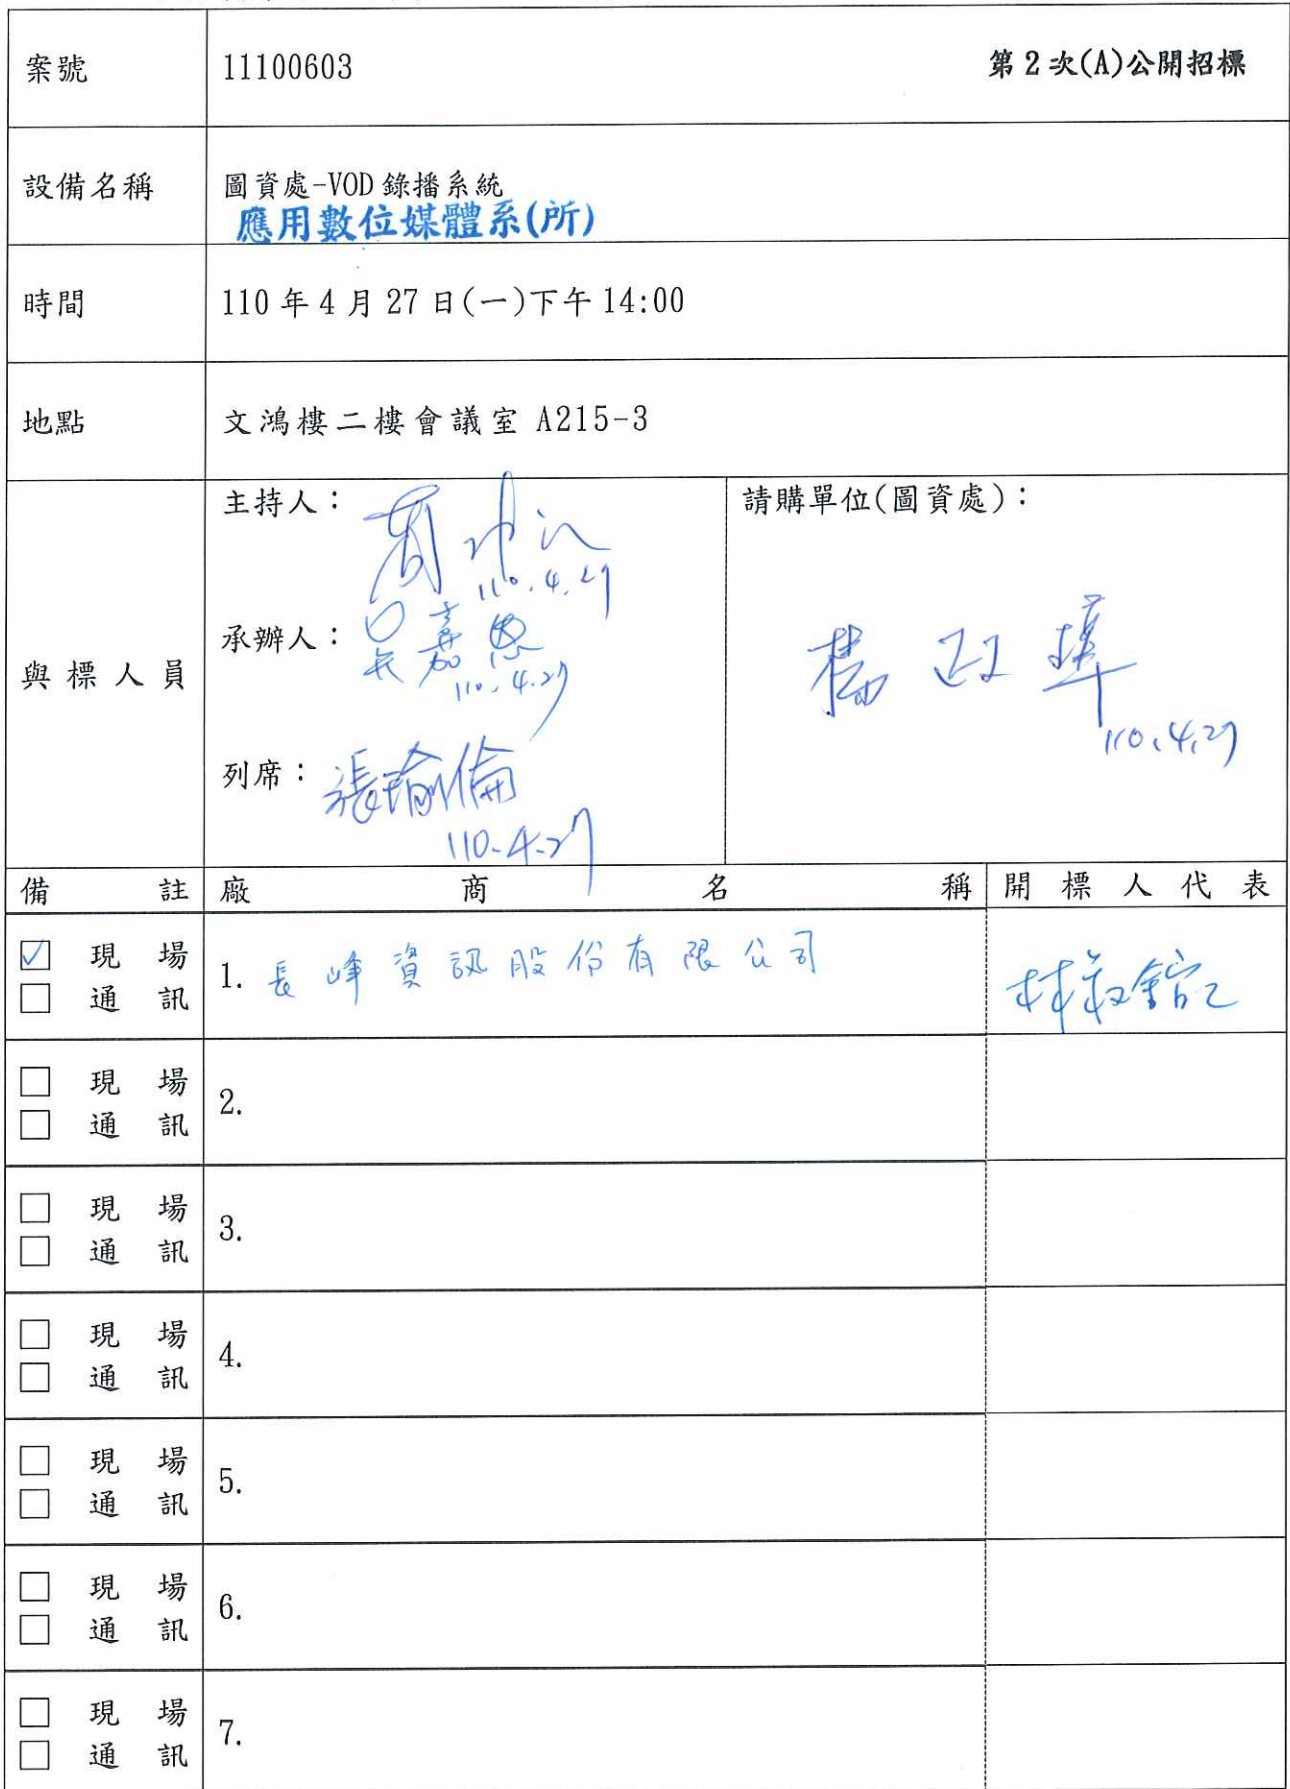 案號 11100603 第2次(A)公開招標
設備名稱 圖資處-VOD錄播系統
應用數位媒體系(所)
時間 110年4月27日(一)下午14:00
地點 文鴻樓二樓會議室 A215-3
與標人員
主持人：
110.4.27
承辦人：吳嘉恩
110.4.27
列席：張瑜倫
110.4.27
請購單位(圖資處)：
楊政
110.4.27
備註 廠商名稱 開標人代表
☑ 現場
☐ 通訊
1. 長峰資訊股份有限公司
林
☐ 現場
☐ 通訊
2.
☐ 現場
☐ 通訊
3.
☐ 現場
☐ 通訊
4.
☐ 現場
☐ 通訊
5.
☐ 現場
☐ 通訊
6.
☐ 現場
☐ 通訊
7.